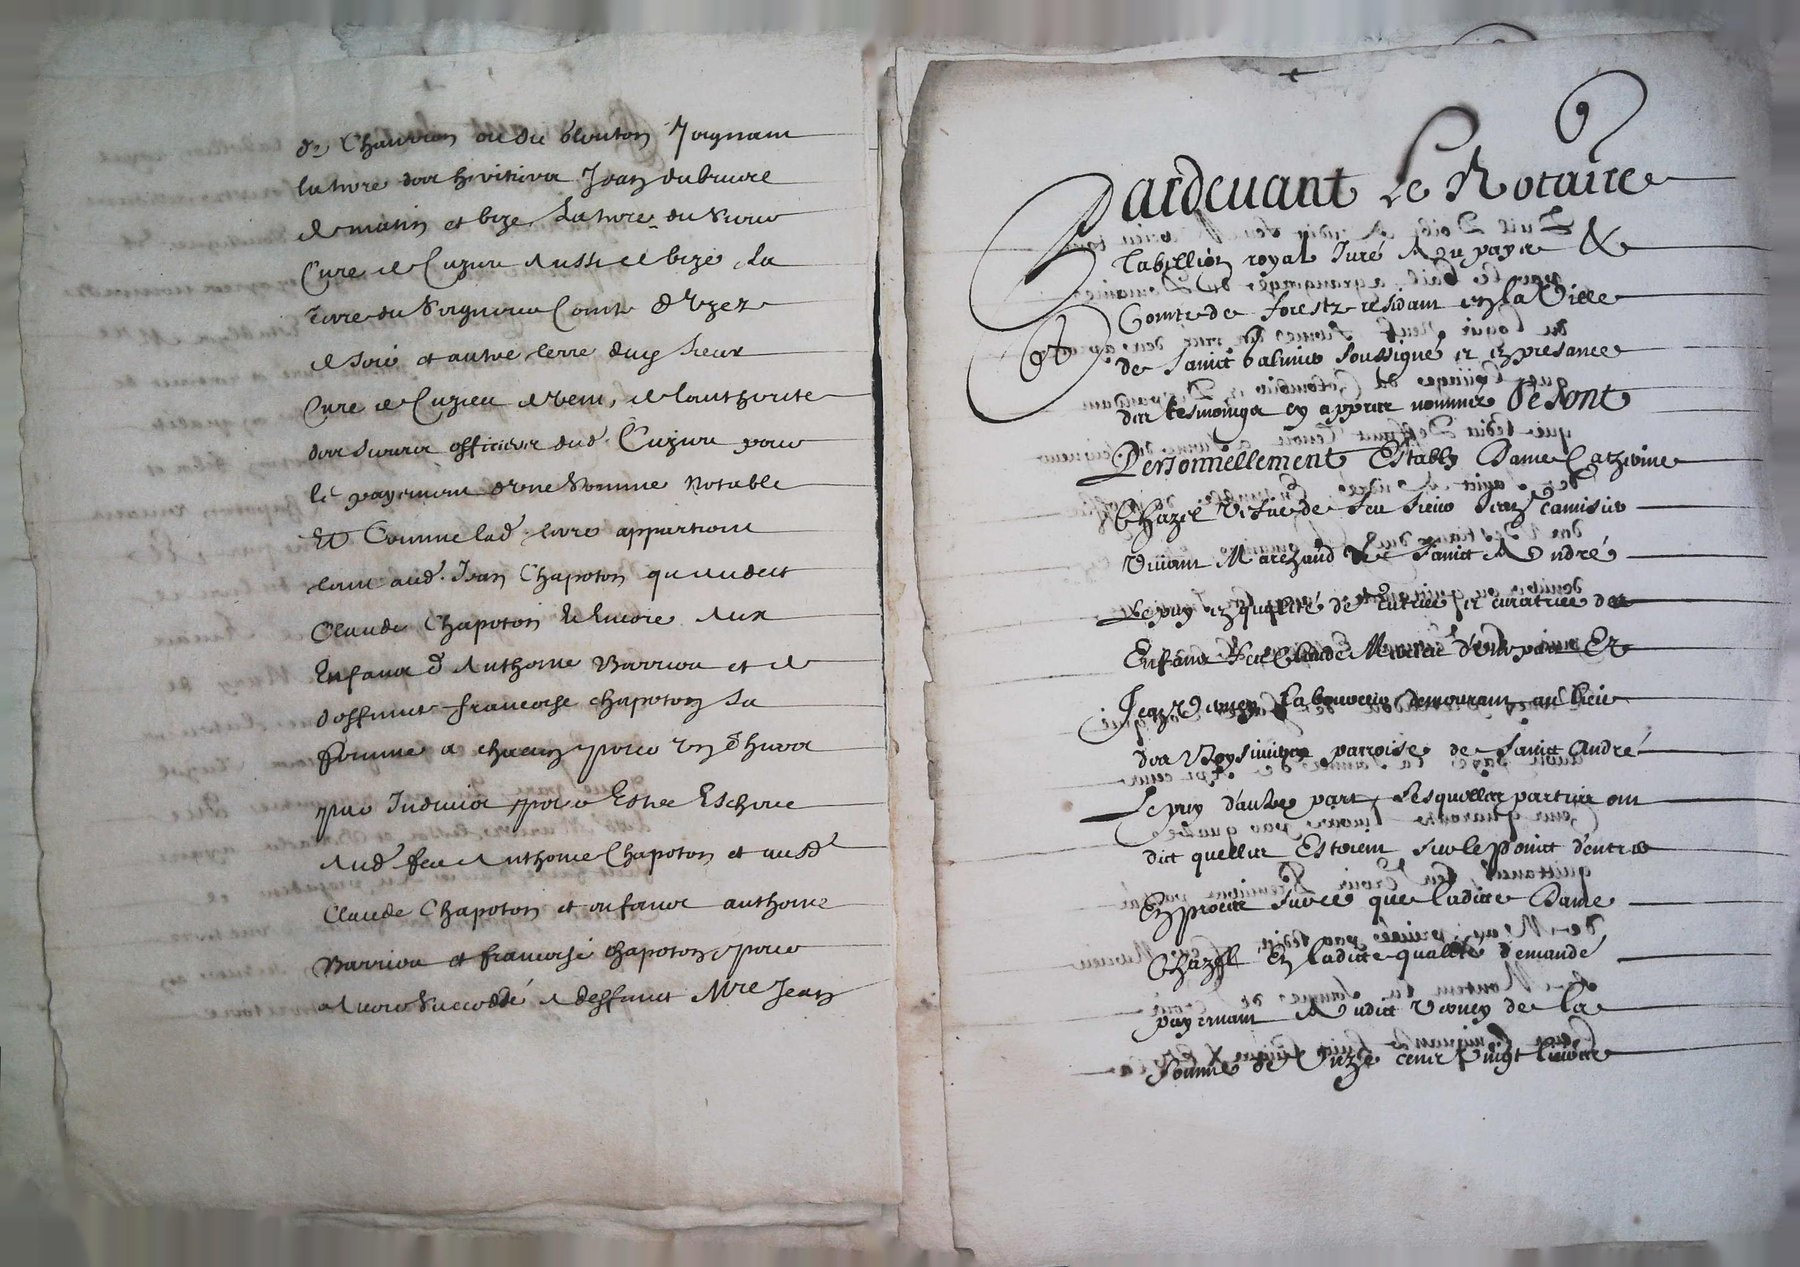 de Chauvion ou du blouton Joignant
la terre des heritiers Jean dubruere
de matin et bize La terre du sieur
Cure de Cuzieu aussi de bize La
terre du Seigneur Comte d'Uzez
de soir et autre terre dud sieur
Cure de Cuzieu de vent, de l'authorite
des sieurs officiers dud. Cuzieu pour
le payement d'une somme notable
Et Comme lad. terre appartient
tant aud. Jean Chapoton qu'audit
Claude Chapoton Et Encore aux
Enfans d'Anthoine Barriou et de
deffunte francoise chapoton La
femme a chacun pour un thiers
par Indivis pour Estre Escheue
Aud. feu Anthoine Chapoton et ausd.
Claude Chapoton et enfans anthoine
Barriou et francoise chapoton pour
avoir succeddé a deffunct Mre Jean
Pardevant Le Notaire
Tabellion royal Juré Au payis &
Comte de forestz residant en la Ville
de Sainct balmier soussigné et en presance
des tesmoings cy appres nommes Se sont
Personnellement Establys Dame Catherine
Chazel Vefve de feu sieur Jean Camisier
Vivant Marchand de Sainct André
Le puy en qualité de tutrice et curatrice des
Enfans d'une part Et
Jean Verney Laboureur demourant au lieu
des parroise de Sainct André
Le puy d'autre part, Lesquelles parties ont
dict quelles Estoient sur le poinct d'entrer
En proces sur ce que ladicte Dame
Chazel En ladicte qualite demande
payement Audict Verney de La
somme de cent Vingt livres